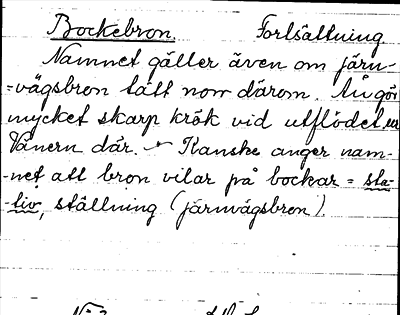 Bockebron. Fortsättning
Namnet gäller även om järn-
=vägsbron tätt norr därom. Ån gör
mycket skarp krök vid utflödet ur
Vänern där. - Kanske anger nam-
-net att bron vilar på bockar = sta-
tiv, ställning (järnvägsbron).